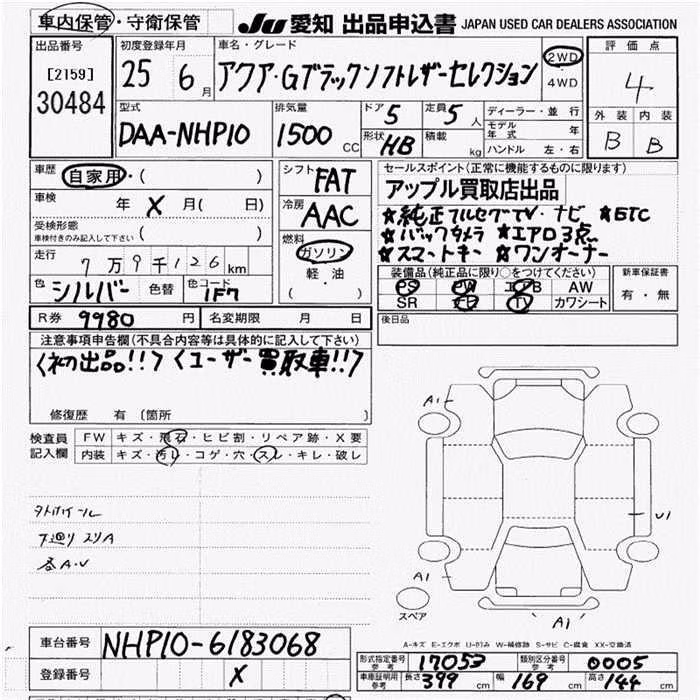 車内保管・守衛保管 JU 愛知 出品申込書 JAPAN USED CAR DEALERS ASSOCIATION
出品番号 初度登録年月 車名・グレード 評価点
[2159] 25 6月 アクア・Gブラックソフトレザーセレクション 2WD・4WD 4
30484
型式 排気量 ドア 5 定員 5人 ディーラー・並行 外装 内装
DAA-NHP10 1500cc 形状 HB 積載 kg モデル年式 年 B B
ハンドル 左・右
車歴 自家用・( ) シフト FAT セールスポイント(正常に機能するものに限ります)
車検 年 X 月( 日) 冷房 AAC アップル買取店出品
受検形態 ( ) ★純正フルセグTV・ナビ ★ETC
車検付きのみ記入して下さい 燃料 ★バックカメラ ★エアロ3点
走行 7万9千126km ガソリン ★スマートキー ★ワンオーナー
色 シルバー 色替 色コード 1F7 軽・油 ( ) 装備品(純正品に限り○をつけてください) 新車保証書
PS PW エアB AW 有・無
SR TV カワシート
R券 9980円 名変期限 月 日 後日品
注意事項申告欄(不具合内容等は具体的に記入して下さい)
〈初出品!!〉〈ユーザー買取車!!〉
修復歴 有 〔箇所 〕
検査員 FW キズ・飛石・ヒビ割・リペア跡・X要
記入欄 内装 キズ・汚レ・コゲ・穴・スレ・キレ・破レ
A1
U1
下廻りスリA
各A・U
A1
スペア A1
A-キズ E-エクボ U-凹み W-補修跡 S-サビ C-腐食 XX-交換済
車台番号 NHP10-6183068
登録番号 X
形式指定番号 参考 17053 類別区分番号 参考 0005
車庫証明用 参考 長さ 399cm 幅 169cm 高さ 144cm